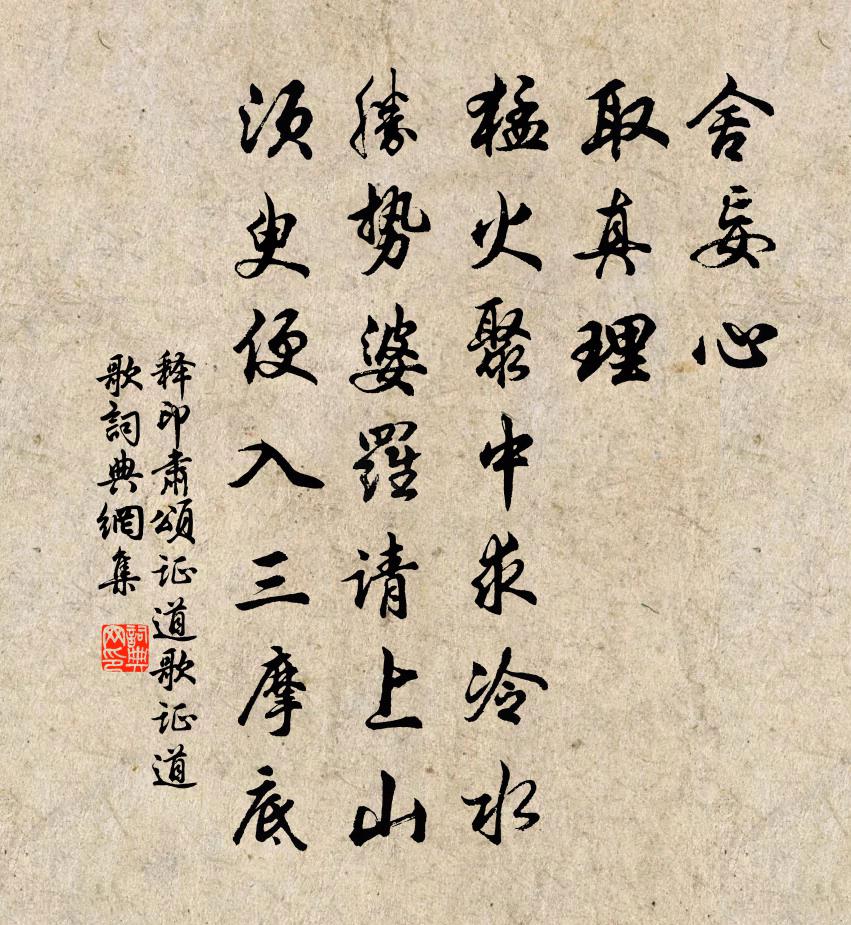 舍妄心
取真理
猛火聚中求冷水
勝势婆羅请上山
须臾便入三摩底
释印肃頌证道歌证道
歌詞典網集
詞典
网印